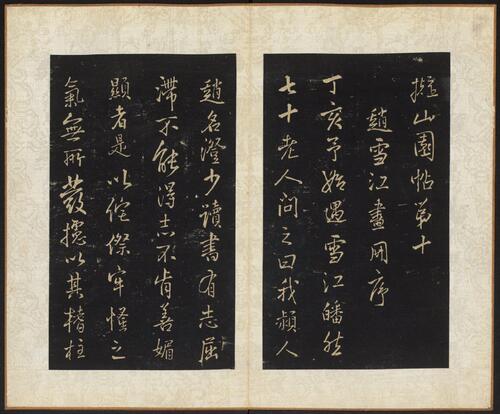 擬山園帖第十
趙雪江畫冊序
丁亥予始遇雪江皤然
七十老人問之曰我潁人
趙名澄少讀書有志屈
滯不能得志不肯善媚
顯者是以侘傺牢愁之
氣無所發攄以其榰柱